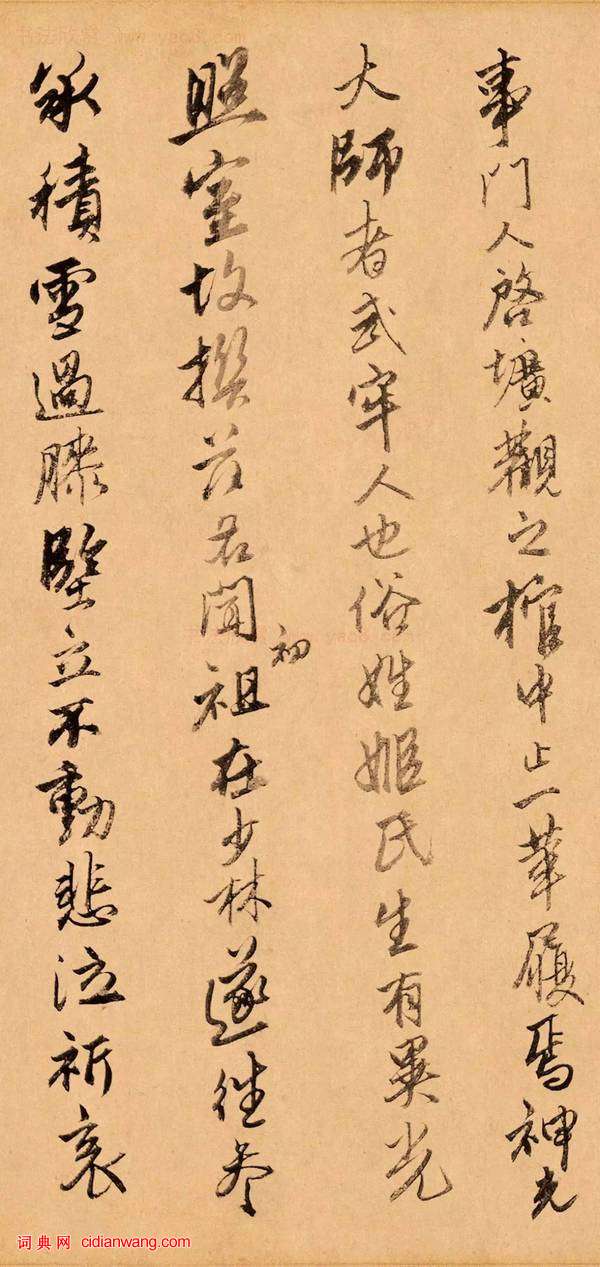 事門人啓壙觀之棺中止一革履焉神光
大師者武牢人也俗姓姬氏生有異光
照室故撰茲名聞初祖在少林遂往參
承積雪過膝堅立不動悲泣祈哀
词典网 cidianwang.com